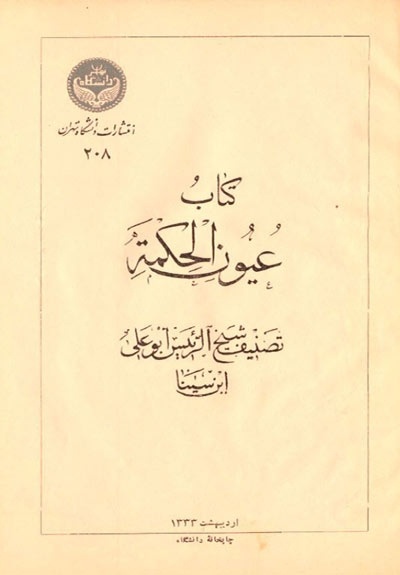 دانشگاه
انتشارات دانشگاه تهران
۲۰۸
كتابُ
عُيُونِ الْحِكْمَةِ
تصنيف شيخ الرئيس ابو على
ابن سينا
اردیبهشت ۱۳۳۳
چاپخانهٔ دانشگاه